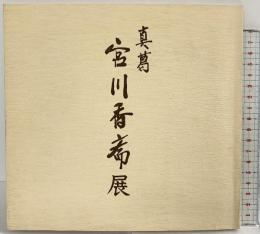 真葛
宮川香斎展